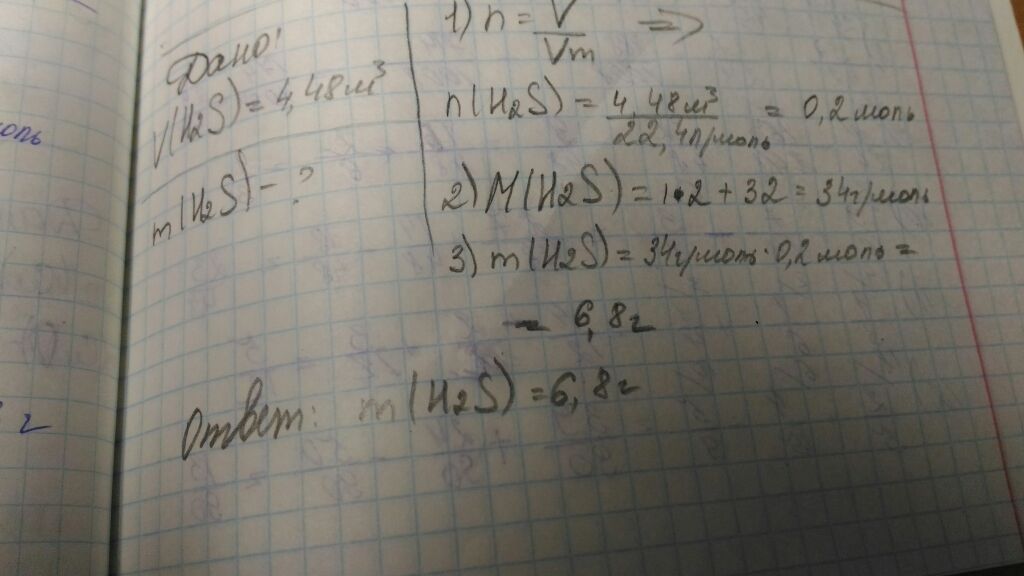 Дано:
V(H2S) = 4,48 м³
m(H2S) - ?
1) n = V/Vm =>
n(H2S) = 4,48 м³/22,4 л/моль = 0,2 моль
2) M(H2S) = 1•2 + 32 = 34 г/моль
3) m(H2S) = 34 г/моль · 0,2 моль =
= 6,8 г
Ответ: m(H2S) = 6,8 г
оль
г